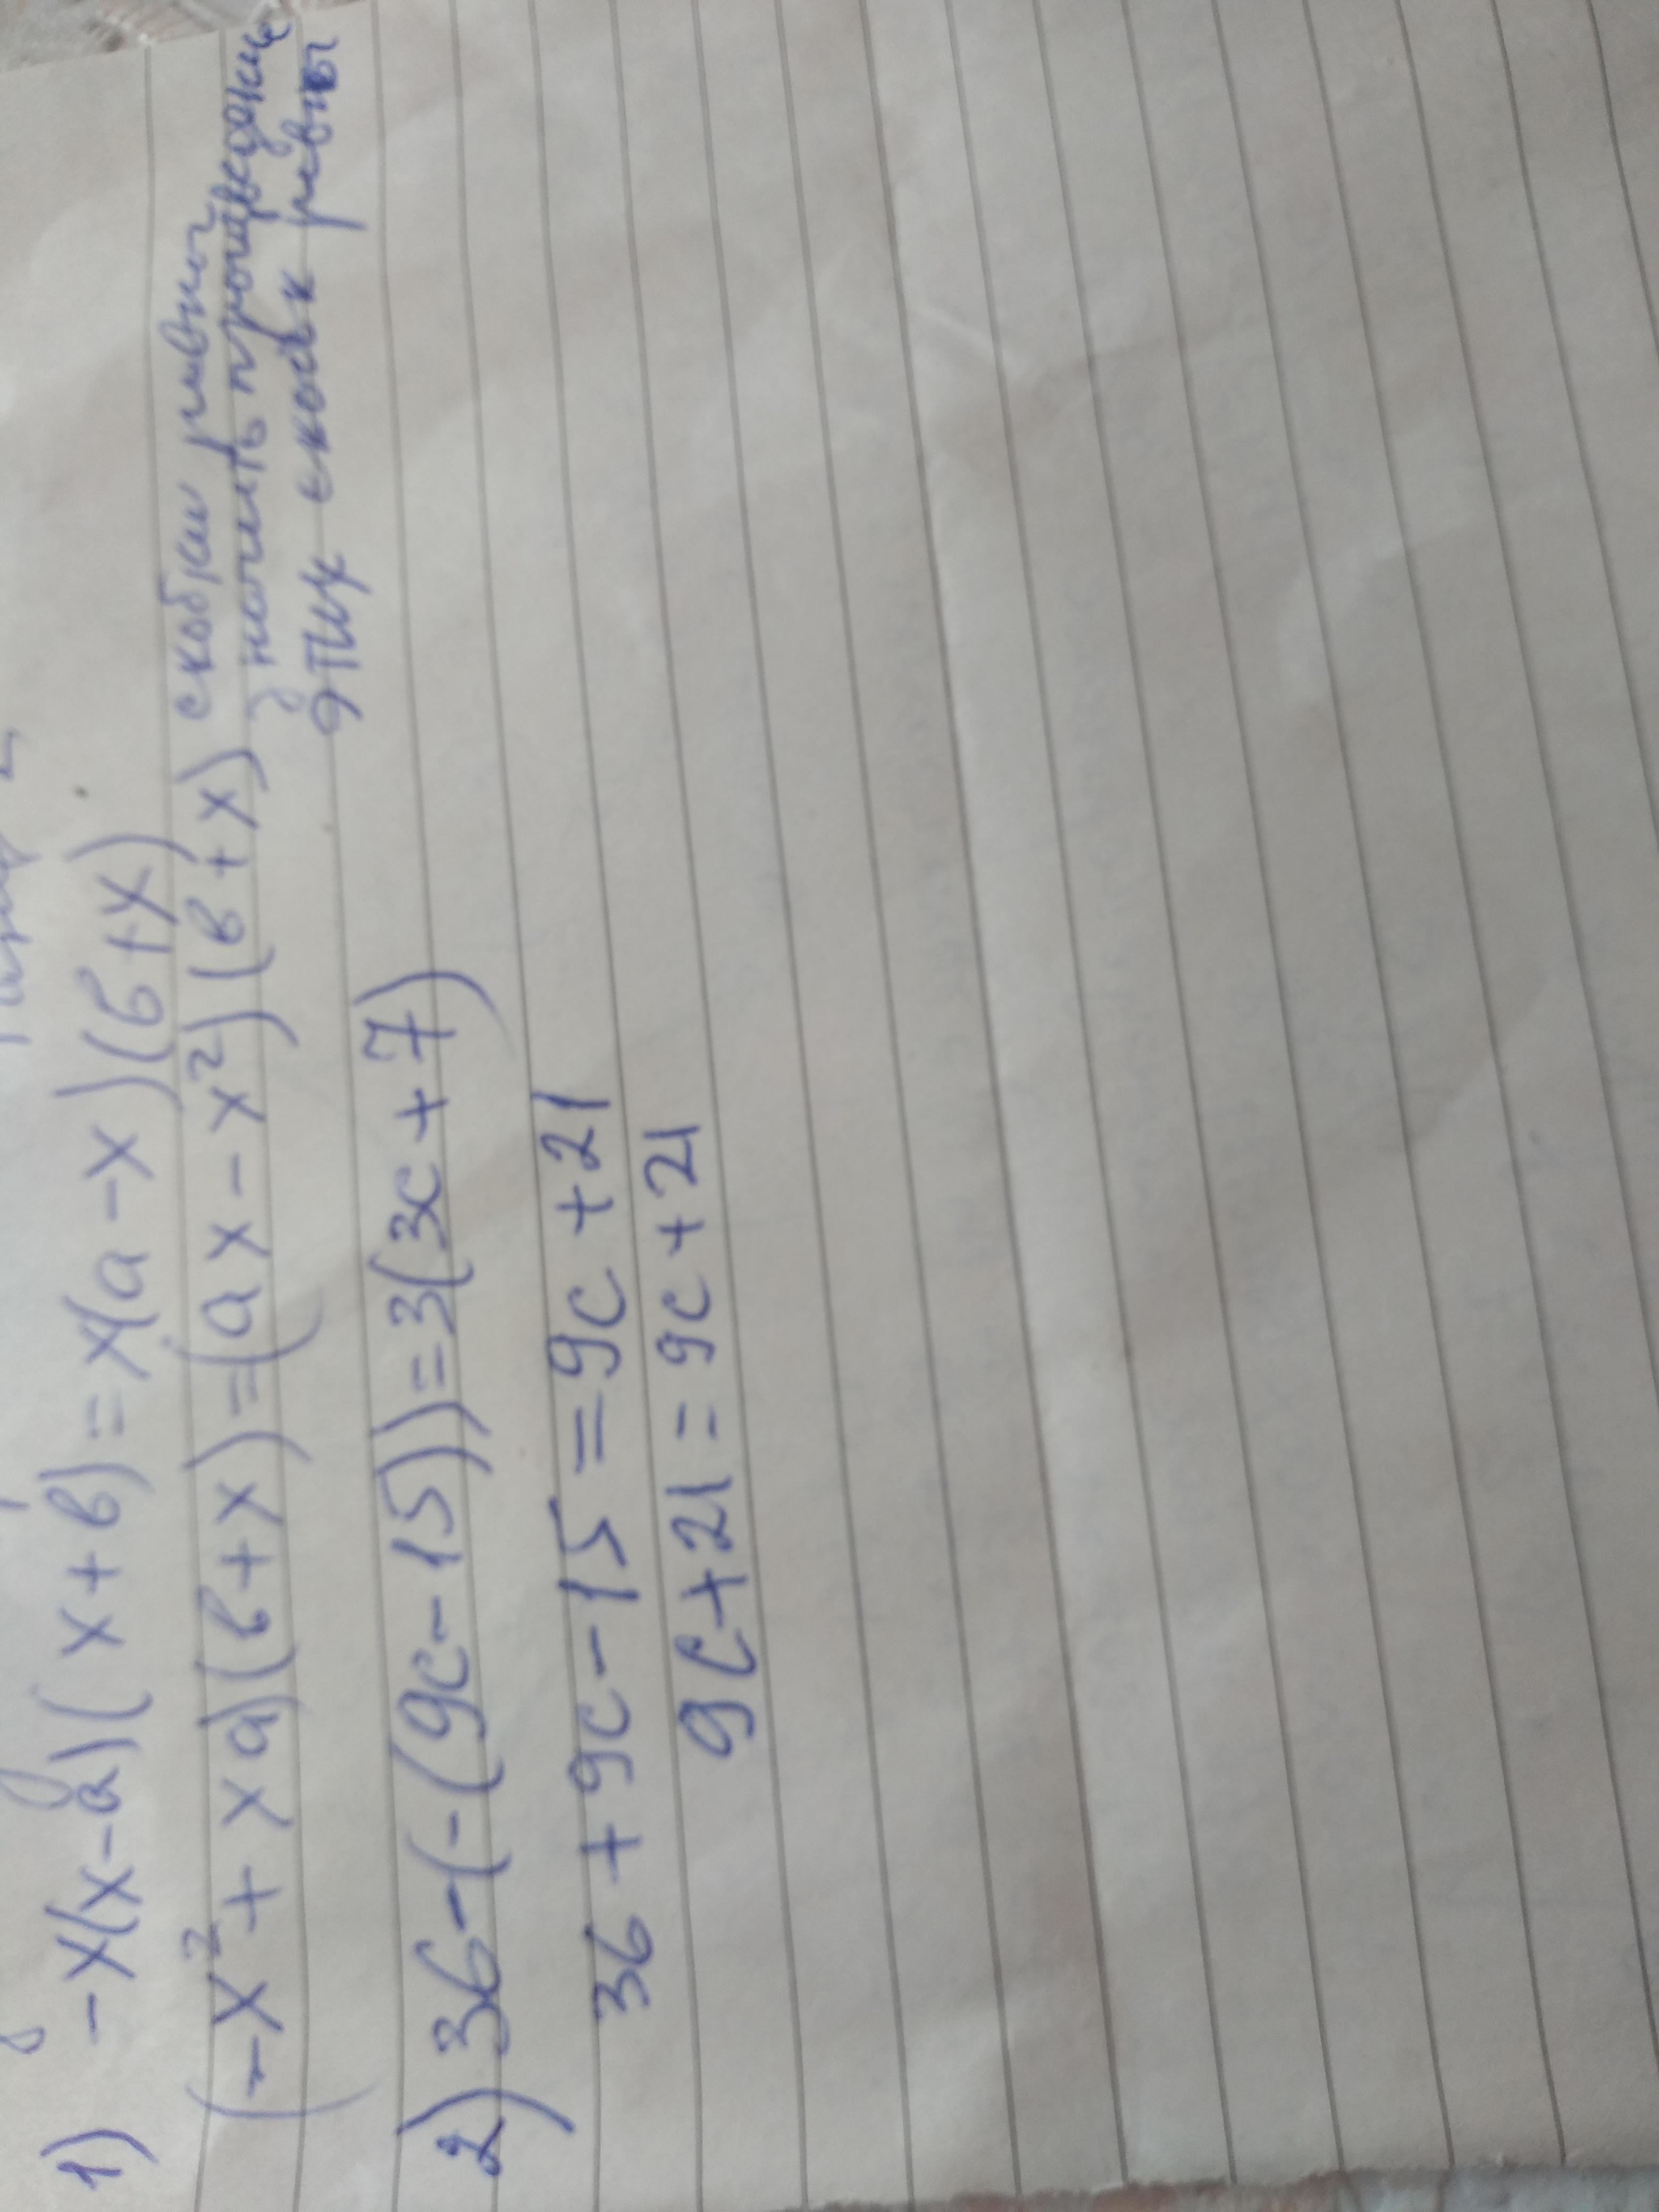 1) -x(x-a)(x+в)=x(a-x)(в+x)
(-x²+xa)(в+x)=(ax-x²)(в+x) скобки равны
значить произведение
этих скобок равны
2) 36-(-(9c-15))=3(3c+7)
36+9c-15=9c+21
9c+21=9c+21